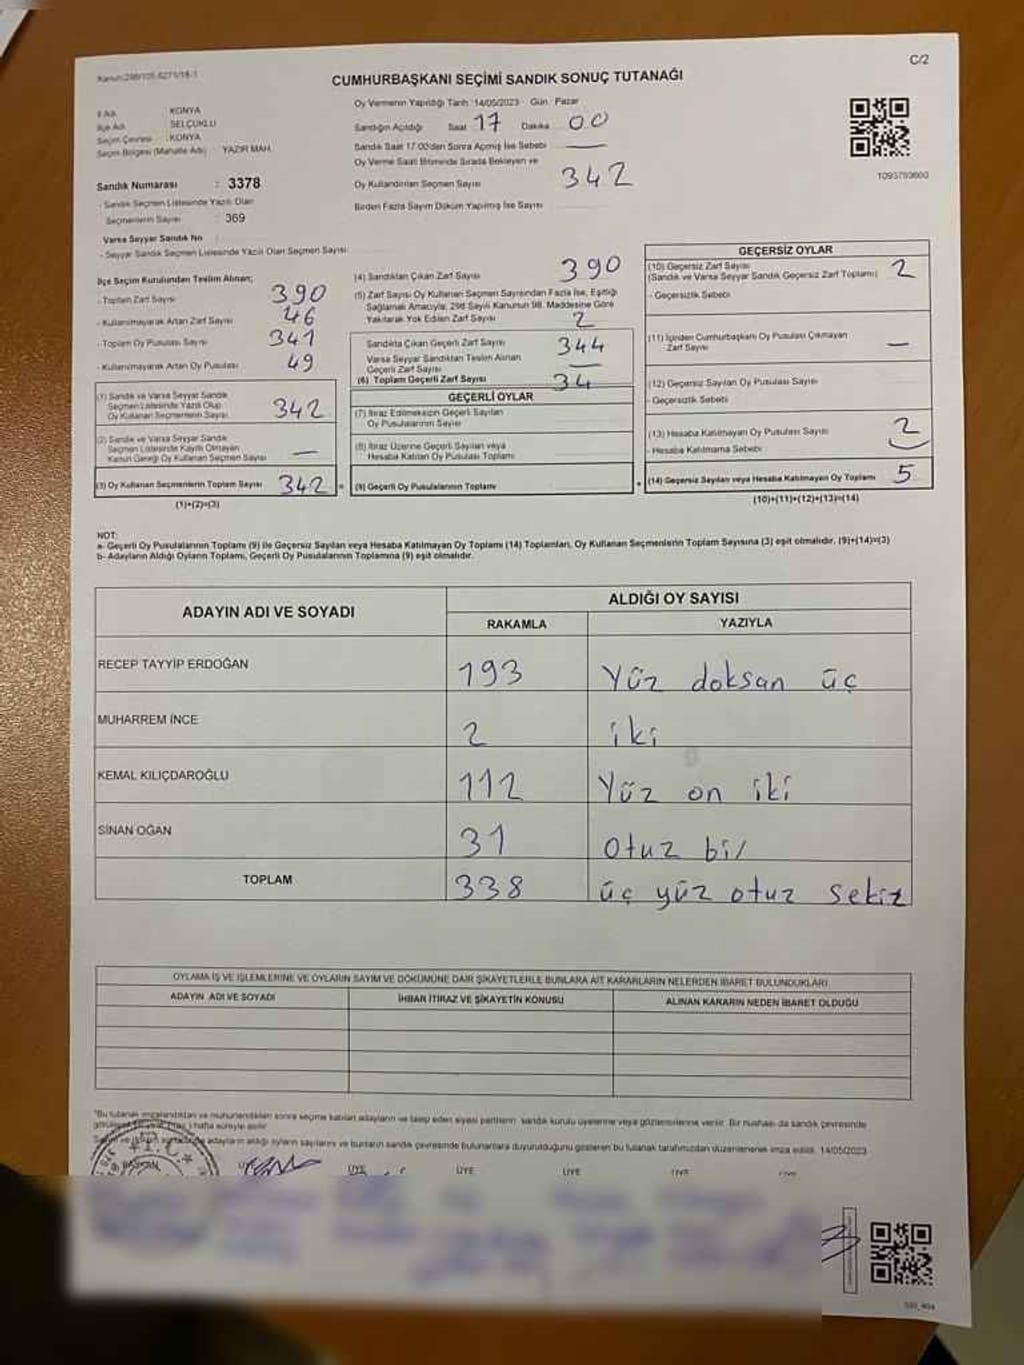 Kanun:298/105,6271/18-1
C/2
CUMHURBAŞKANI SEÇİMİ SANDIK SONUÇ TUTANAĞI
İl Adı : KONYA
İlçe Adı : SELÇUKLU
Seçim Çevresi : KONYA
Seçim Bölgesi (Mahalle Adı) : YAZIR MAH.
Sandık Numarası : 3378
- Sandık Seçmen Listesinde Yazılı Olan
Seçmenlerin Sayısı : 369
Varsa Seyyar Sandık No
- Seyyar Sandık Seçmen Listesinde Yazılı Olan Seçmen Sayısı:
Oy Vermenin Yapıldığı Tarih :14/05/2023 Gün : Pazar
Sandığın Açıldığı Saat 17 Dakika 00
Sandık Saat 17:00'den Sonra Açmış İse Sebebi
Oy Verme Saati Bitiminde Sırada Bekleyen ve
Oy Kullandırılan Seçmen Sayısı 342
Birden Fazla Sayım Döküm Yapılmış İse Sayısı
1093793600
İlçe Seçim Kurulundan Teslim Alınan;
- Toplam Zarf Sayısı 390
- Kullanılmayarak Artan Zarf Sayısı 46
- Toplam Oy Pusulası Sayısı 341
- Kullanılmayarak Artan Oy Pusulası 49
(1) Sandık ve Varsa Seyyar Sandık
Seçmen Listesinde Yazılı Olup
Oy Kullanan Seçmenlerin Sayısı 342
(2) Sandık ve Varsa Seyyar Sandık
Seçmen Listesinde Kayıtlı Olmayan
Kanun Gereği Oy Kullanan Seçmen Sayısı —
(3) Oy Kullanan Seçmenlerin Toplam Sayısı 342
(1)+(2)=(3)
(4) Sandıktan Çıkan Zarf Sayısı 390
(5) Zarf Sayısı Oy Kullanan Seçmen Sayısından Fazla İse, Eşitliği
Sağlamak Amacıyla, 298 Sayılı Kanunun 98. Maddesine Göre
Yakılarak Yok Edilen Zarf Sayısı 2
Sandıkta Çıkan Geçerli Zarf Sayısı 344
Varsa Seyyar Sandıktan Teslim Alınan
Geçerli Zarf Sayısı —
(6) Toplam Geçerli Zarf Sayısı 34
GEÇERLİ OYLAR
(7) İtiraz Edilmeksizin Geçerli Sayılan
Oy Pusulalarının Sayısı
(8) İtiraz Üzerine Geçerli Sayılan veya
Hesaba Katılan Oy Pusulası Toplamı
(9) Geçerli Oy Pusulalarının Toplamı
GEÇERSİZ OYLAR
(10) Geçersiz Zarf Sayısı
(Sandık ve Varsa Seyyar Sandık Geçersiz Zarf Toplamı) 2
- Geçersizlik Sebebi
(11) İçinden Cumhurbaşkanı Oy Pusulası Çıkmayan
Zarf Sayısı —
(12) Geçersiz Sayılan Oy Pusulası Sayısı
- Geçersizlik Sebebi
(13) Hesaba Katılmayan Oy Pusulası Sayısı 2
- Hesaba Katılmama Sebebi
(14) Geçersiz Sayılan veya Hesaba Katılmayan Oy Toplamı 5
(10)+(11)+(12)+(13)=(14)
NOT:
a- Geçerli Oy Pusulalarının Toplamı (9) ile Geçersiz Sayılan veya Hesaba Katılmayan Oy Toplamı (14) Toplamları, Oy Kullanan Seçmenlerin Toplam Sayısına (3) eşit olmalıdır. (9)+(14)=(3)
b- Adayların Aldığı Oyların Toplamı, Geçerli Oy Pusulalarının Toplamına (9) eşit olmalıdır.
ADAYIN ADI VE SOYADI
ALDIĞI OY SAYISI
RAKAMLA YAZIYLA
RECEP TAYYİP ERDOĞAN 193 Yüz doksan üç
MUHARREM İNCE 2 iki
KEMAL KILIÇDAROĞLU 112 Yüz on iki
SİNAN OĞAN 31 Otuz bir
TOPLAM 338 üç yüz otuz sekiz
OYLAMA İŞ VE İŞLEMLERİNE VE OYLARIN SAYIM VE DÖKÜMÜNE DAİR ŞİKAYETLERLE BUNLARA AİT KARARLARIN NELERDEN İBARET BULUNDUKLARI
ADAYIN ADI VE SOYADI İHBAR İTİRAZ VE ŞİKAYETİN KONUSU ALINAN KARARIN NEDEN İBARET OLDUĞU
*Bu tutanak imzalandıktan ve mühürlendikten sonra seçime katılan adayların ve talep eden siyasi partilerin sandık kurulu üyelerine veya gözlemcilerine verilir. Bir nüshası da sandık çevresinde
hafta süreyle asılır.
adayların aldığı oyların sayılarını ve bunların sandık çevresinde bulunanlara duyurulduğunu gösteren bu tutanak tarafımızdan düzenlenerek imza edildi. 14/05/2023
T.C.
BAŞKAN ÜYE ÜYE ÜYE ÜYE ÜYE